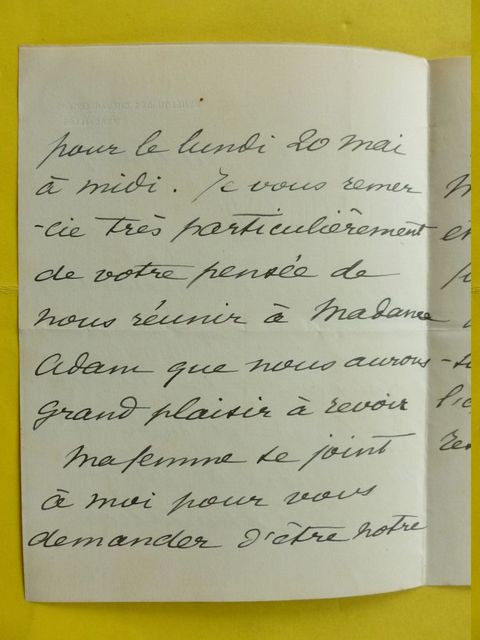 pour le lundi 20 mai
à midi. Je vous remer
-cie très particulièrement
de votre pensée de
nous réunir à Madame
Adam que nous aurons
grand plaisir à revoir
Ma femme se joint
à moi pour vous
demander d'être notre